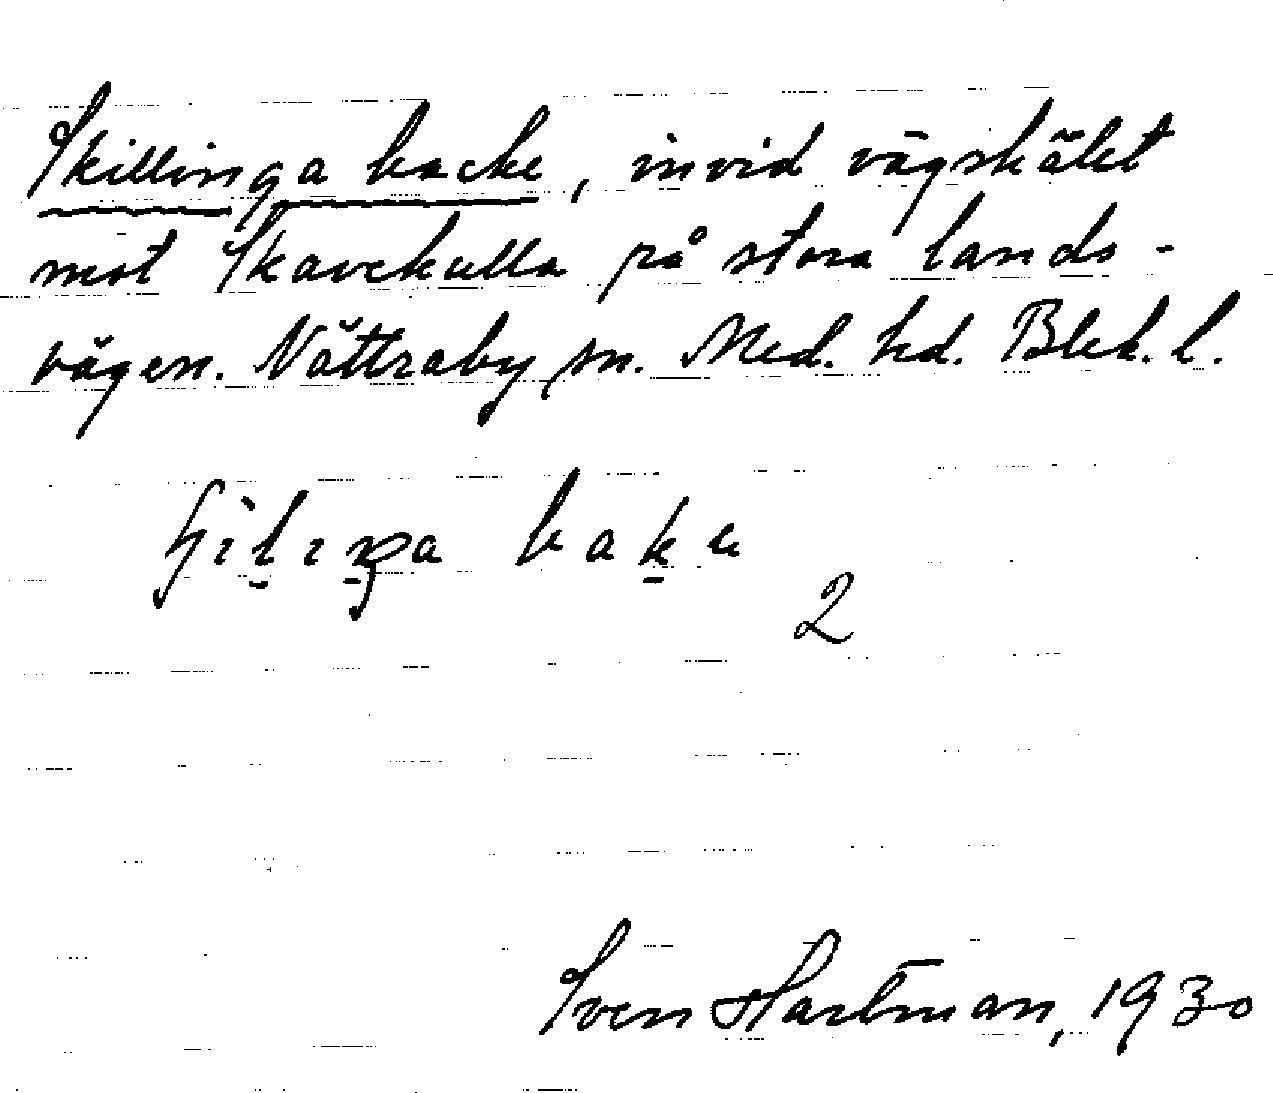 Skillinga backe, invid vägskälet
mot Skavekulla på stora lands-
vägen. Nättraby sn. Med. hd. Blek. l.
bake
2
Sven Hartman, 1930